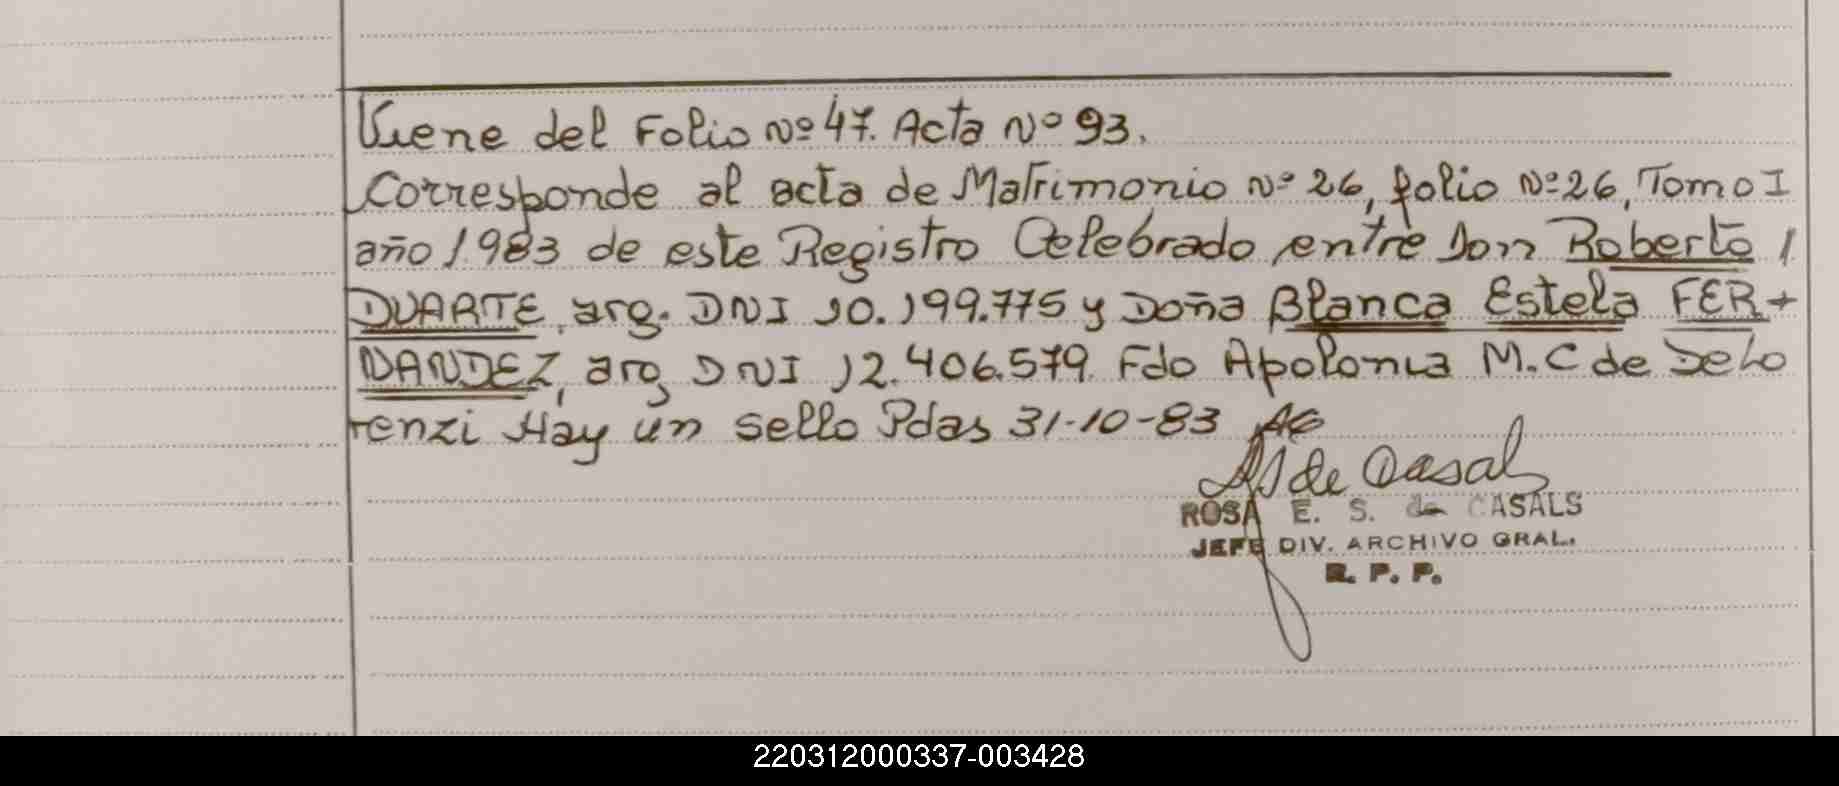 Viene del Folio Nº 47. Acta Nº 93.
Corresponde al acta de Matrimonio Nº 26, folio Nº 26, Tomo I
año 1.983 de este Registro Celebrado entre Don Roberto /
DUARTE, arg. DNI 10.199.775 y Doña Blanca Estela FER-
NANDEZ, arg DNI 12.406.579. Fdo Apolonia M.C de Delo
renzi Hay un sello Pdas 31-10-83
de Casals
ROSA E. S. de CASALS
JEFE DIV. ARCHIVO GRAL.
R. P. P.
220312000337-003428